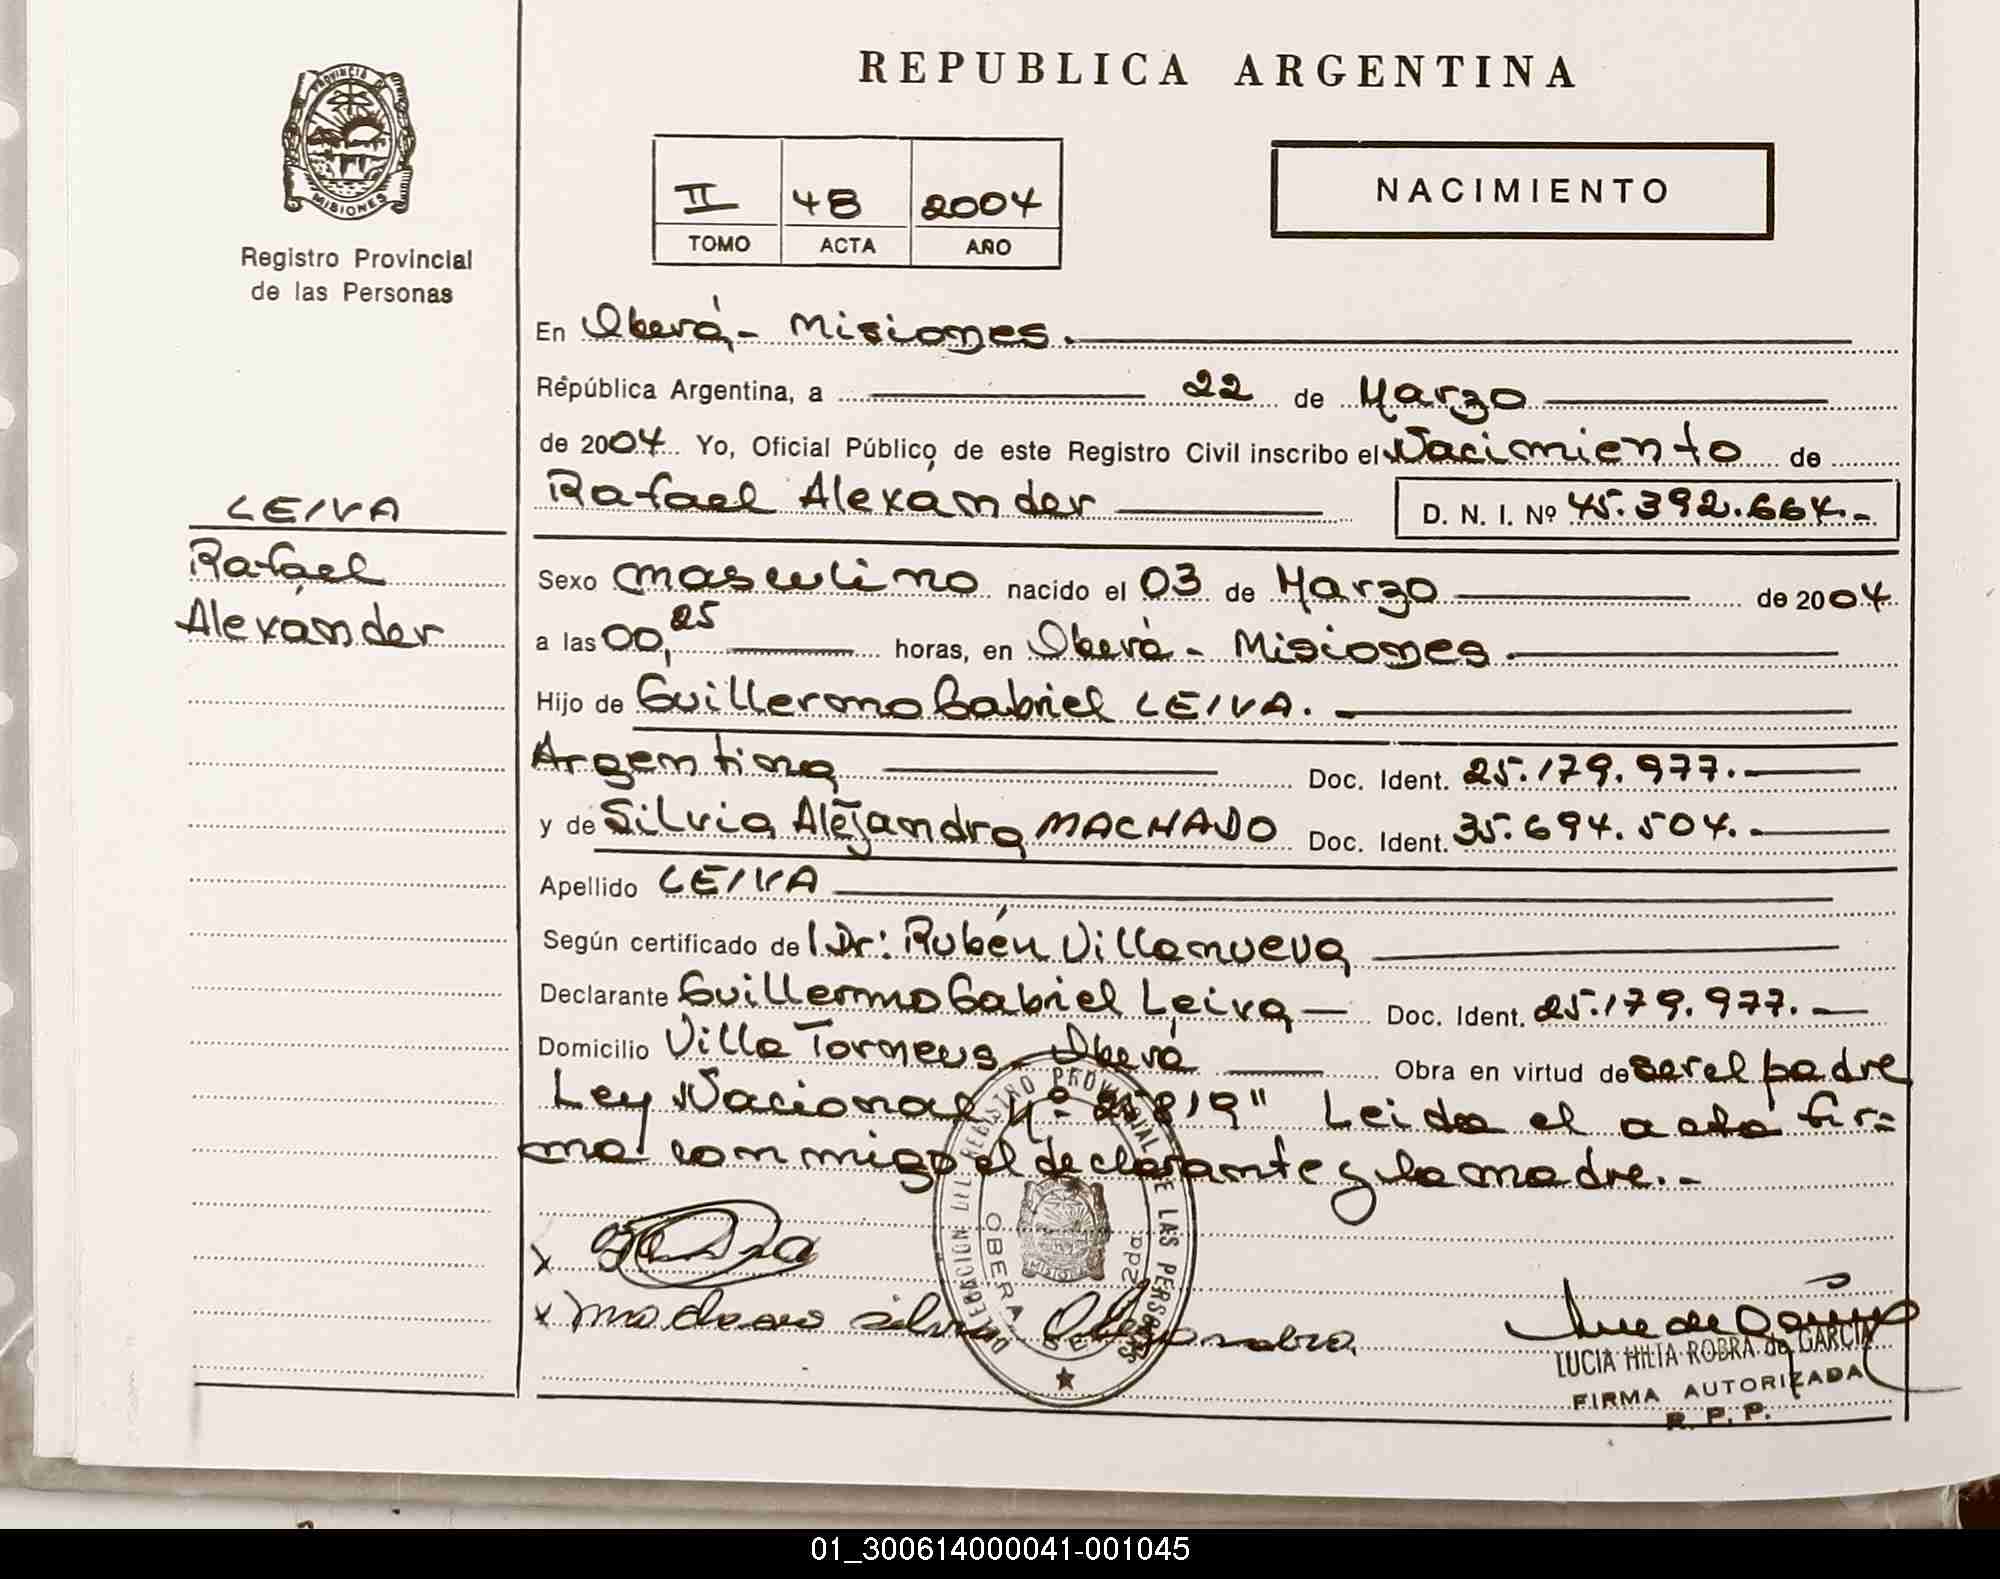 REPUBLICA ARGENTINA
PROVINCIA DE
MISIONES
Registro Provincial
de las Personas
II 48 2004
TOMO ACTA AÑO
NACIMIENTO
En Oberá - Misiones.
República Argentina, a 22 de Marzo
de 2004 Yo, Oficial Público de este Registro Civil inscribo el Nacimiento de
Rafael Alexánder D. N. I. Nº 45.392.664.-
LEIVA
Rafael
Alexánder
Sexo masculino nacido el 03 de Marzo de 2004
a las 00,25 horas, en Oberá - Misiones
Hijo de Guillermo Gabriel LEIVA.
Argentina Doc. Ident. 25.179.977.-
y de Silvia Alejandra MACHADO Doc. Ident. 35.694.504.-
Apellido LEIVA
Según certificado del Dr: Rubén Villanueva
Declarante Guillermo Gabriel Leiva - Doc. Ident. 25.179.977.-
Domicilio Villa Torneus - Oberá Obra en virtud de ser el padre
Ley Nacional Nº 25819" Leida el acta fir=
ma conmigo el declarante y la madre.-
DELEGACION DEL REGISTRO PROVINCIAL DE LAS PERSONAS
OBERA 2da
MISIONES
x
x machado silvia Alejandra
LUCIA HILIA ROBRA de GARCIA
FIRMA AUTORIZADA
R. P. P.
01_300614000041-001045